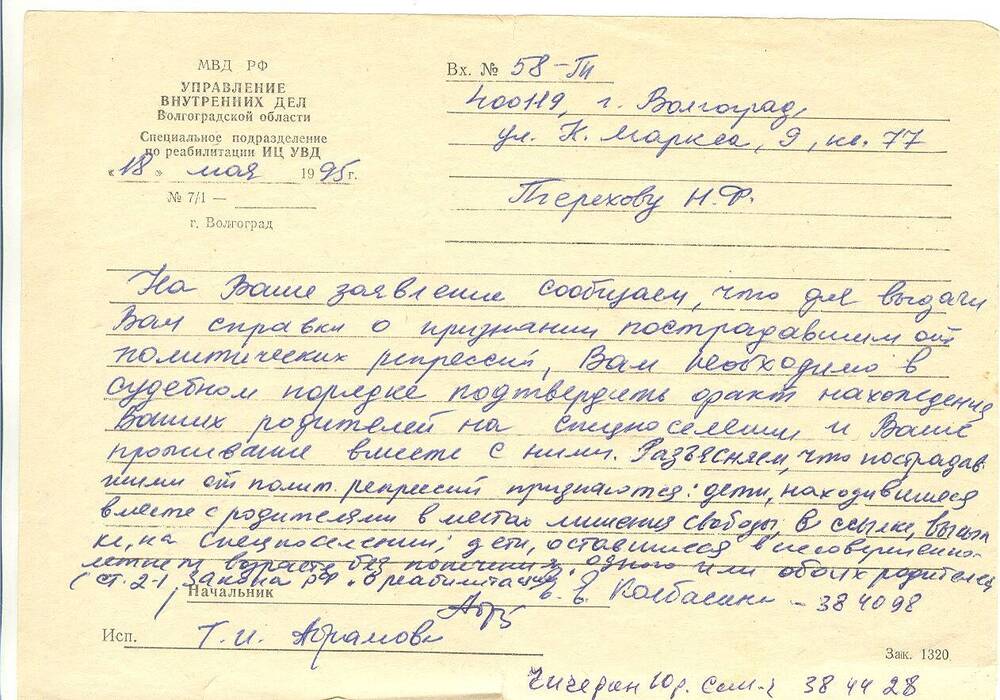 МВД РФ
УПРАВЛЕНИЕ
ВНУТРЕННИХ ДЕЛ
Волгоградской области
Специальное подразделение
по реабилитации ИЦ УВД
«18» мая 1995г.
№ 7/1 —
г. Волгоград
Вх. № 58-Тп
400119, г. Волгоград,
ул. К. Маркса, 9, кв. 77
Терехову Н.Ф.
На Ваше заявление сообщаем, что для выдачи
Вам справки о признании пострадавшим от
политических репрессий, Вам необходимо в
судебном порядке подтвердить факт нахождения
Ваших родителей на спецпоселении и Ваше
проживание вместе с ними. Разъясняем, что пострадав-
шими от полит. репрессий признаются: дети, находившиеся
вместе с родителями в местах лишения свободы, в ссылке, высыл
ке, на спецпоселении; дети, оставшиеся в несовершенно-
летнем возрасте без попечения одного или обоих родителей
(ст. 2-1 Закона РФ "О реабилитации
Начальник
Колбасин - 38 40 98
Исп. Т.И. Абрамова
Зак. 1320
Юр. 38 44 28